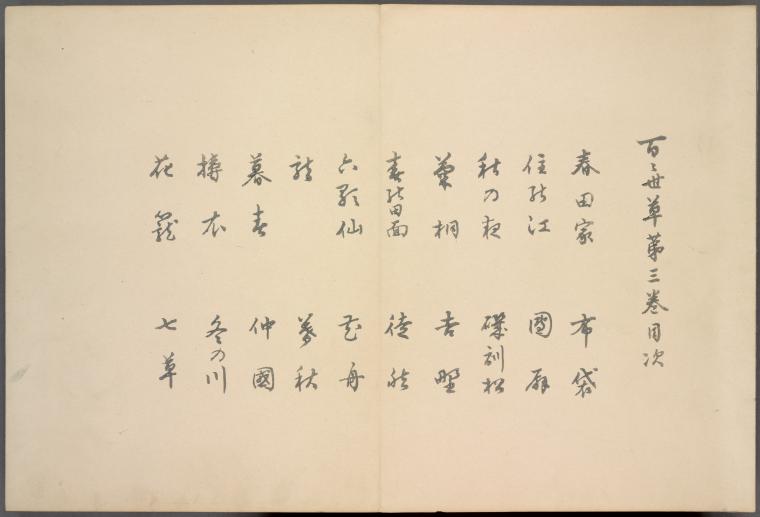 百々世草第三巻目次
春田家 布袋
住能江 團扇
秋の夜 磯訓松
菊桐 吉野
春能田面 徒然
六歌仙 舟
龍 秋
暮春 仲國
擣衣 冬の川
花籠 七草